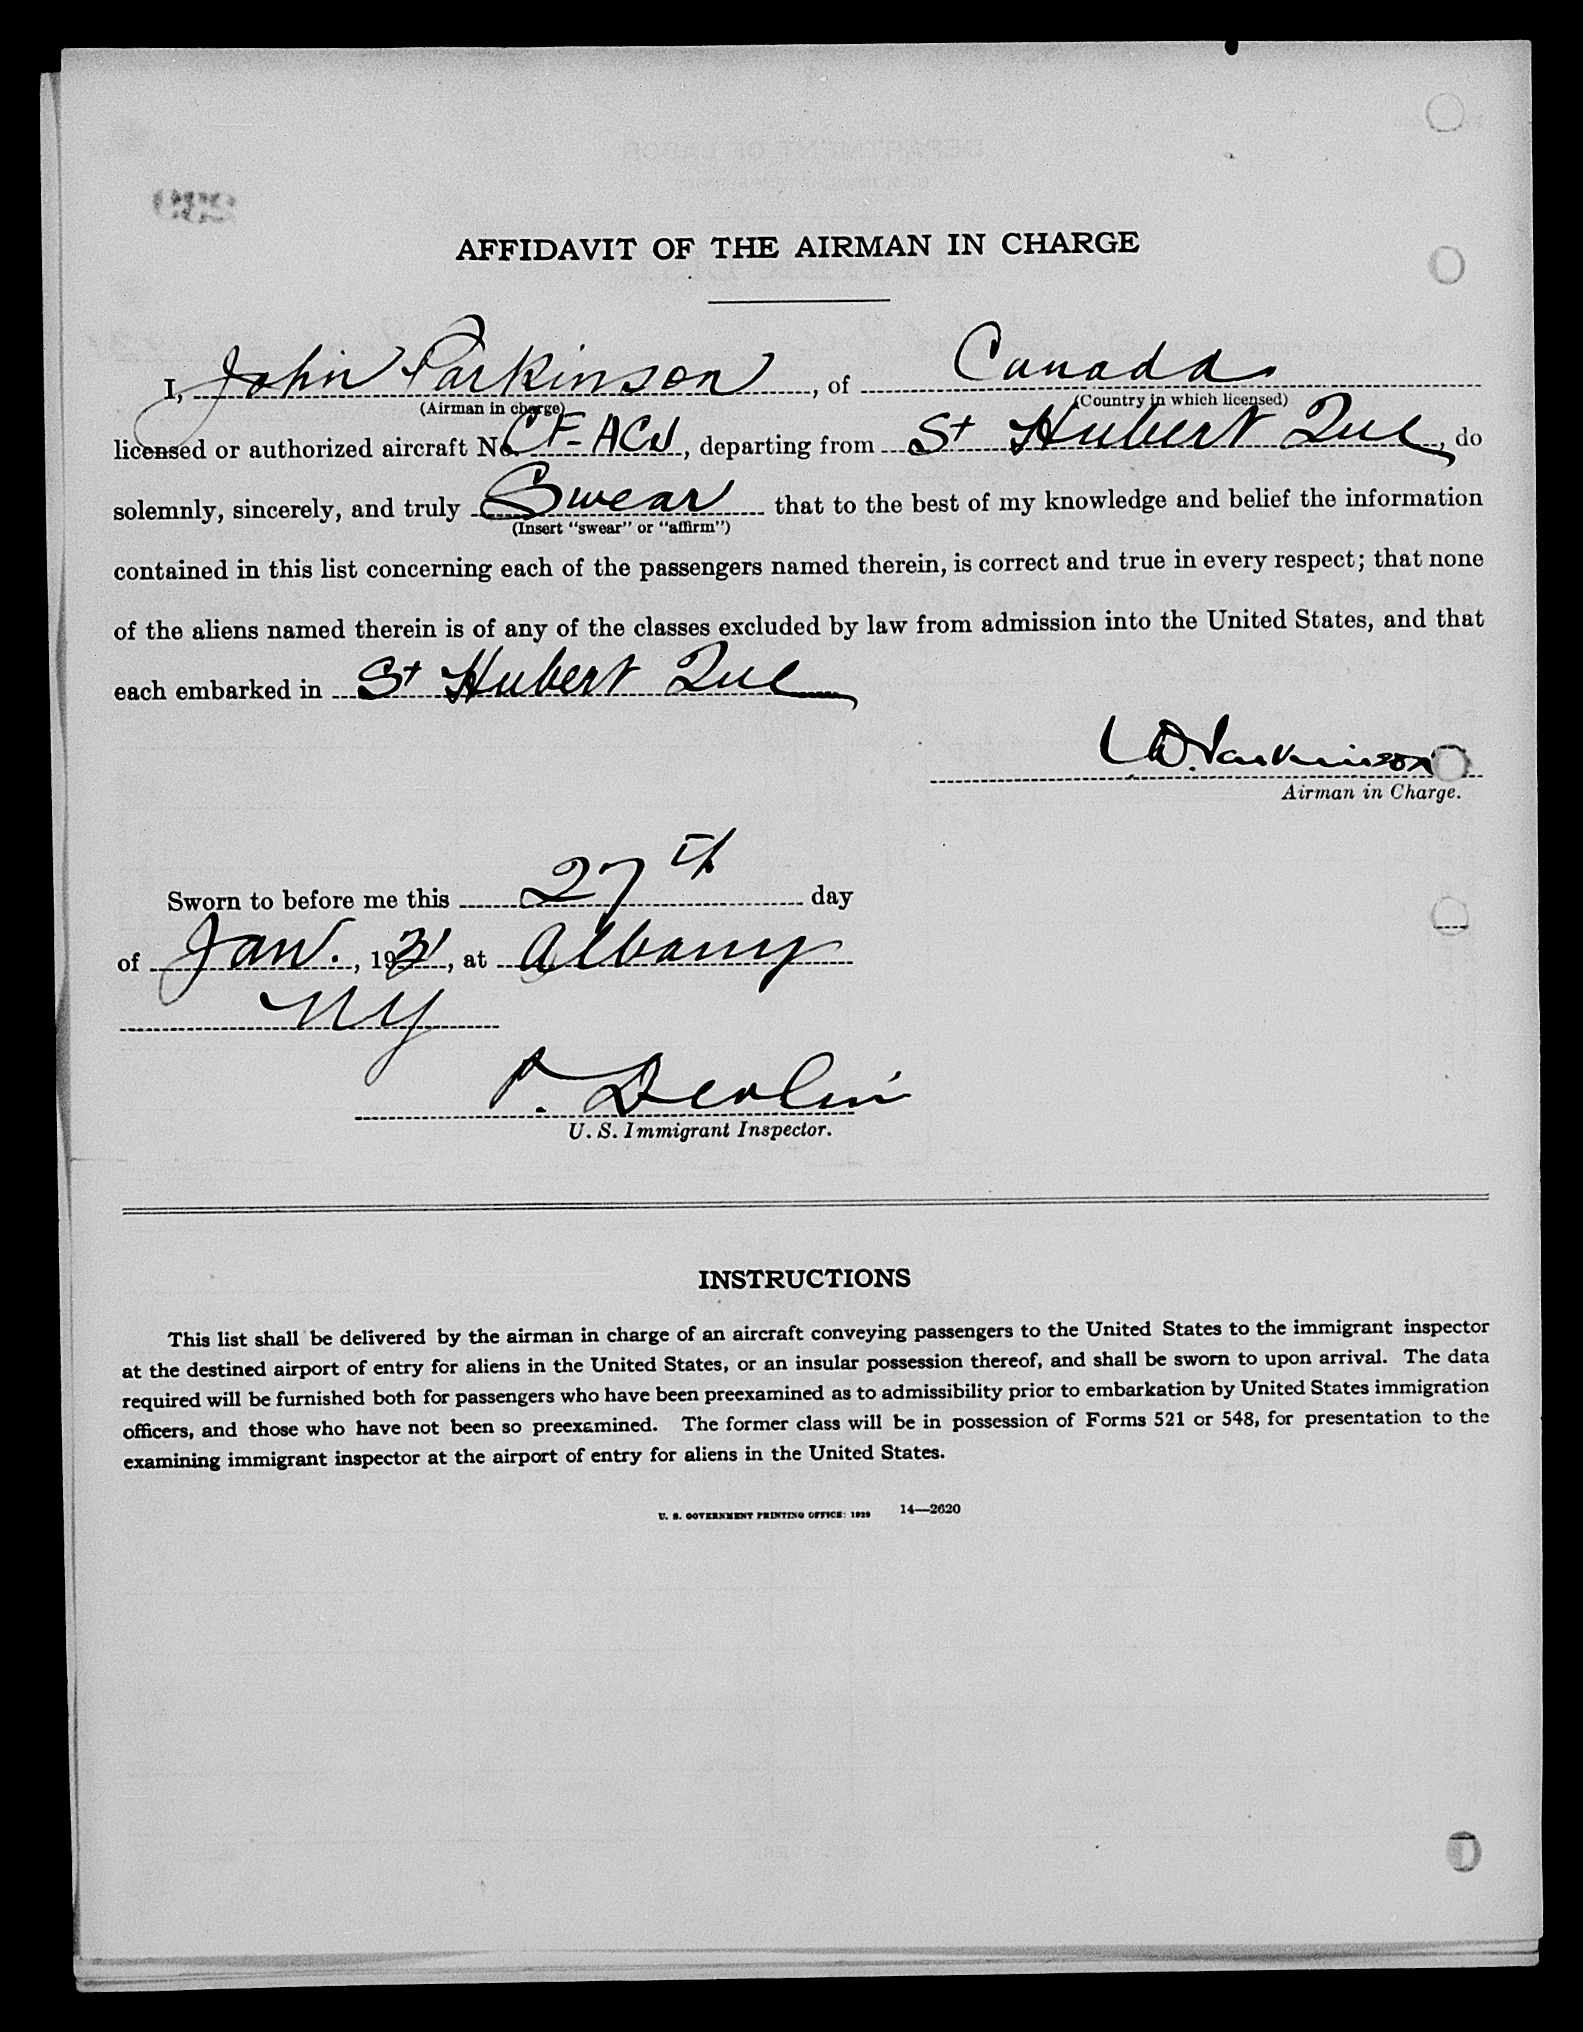 AFFIDAVIT OF THE AIRMAN IN CHARGE
I, John Parkinson, of Canada
(Airman in charge) (Country in which licensed)
licensed or authorized aircraft No. CF-ACW, departing from St Hubert Que, do
solemnly, sincerely, and truly Swear that to the best of my knowledge and belief the information
(Insert "swear" or "affirm")
contained in this list concerning each of the passengers named therein, is correct and true in every respect; that none
of the aliens named therein is of any of the classes excluded by law from admission into the United States, and that
each embarked in St Hubert Que
Parkinson
Airman in Charge.
Sworn to before me this 27th day
of Jan., 1931, at Albany
NY
P. Devlin
U. S. Immigrant Inspector.
INSTRUCTIONS
This list shall be delivered by the airman in charge of an aircraft conveying passengers to the United States to the immigrant inspector
at the destined airport of entry for aliens in the United States, or an insular possession thereof, and shall be sworn to upon arrival. The data
required will be furnished both for passengers who have been preexamined as to admissibility prior to embarkation by United States immigration
officers, and those who have not been so preexamined. The former class will be in possession of Forms 521 or 548, for presentation to the
examining immigrant inspector at the airport of entry for aliens in the United States.
U. S. GOVERNMENT PRINTING OFFICE: 1929 14—2620